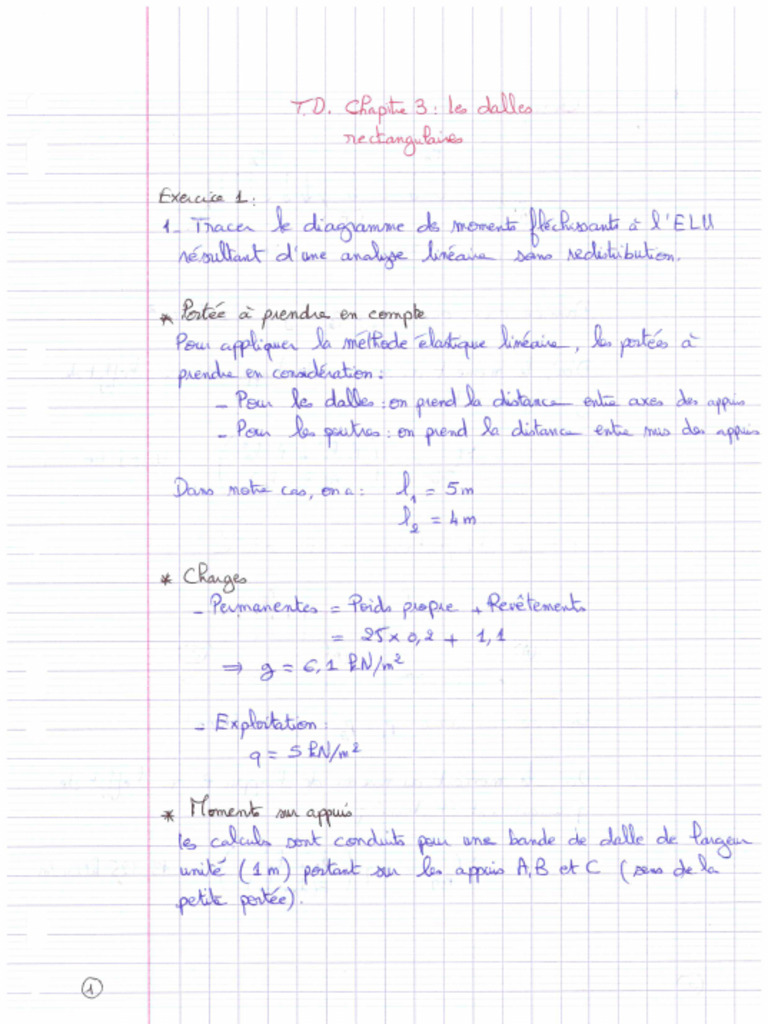 T.D. Chapitre 3 : les dalles
rectangulaires
Exercice 1 :
1_ Tracer le diagramme des moments fléchissants à l'ELU
résultant d'une analyse linéaire sans redistribution.
* Portée à prendre en compte
Pour appliquer la méthode élastique linéaire, les portées à
prendre en considération :
- Pour les dalles : on prend la distance entre axes des appuis
- Pour les poutres : on prend la distance entre nus des appuis
Dans notre cas, on a : l₁ = 5m
l₂ = 4m
* Charges
- Permanentes = Poids propre + Revêtements
= 25 × 0,2 + 1,1
⇒ g = 6,1 kN/m²
- Exploitation :
q = 5 kN/m²
* Moments sur appuis
les calculs sont conduits pour une bande de dalle de largeur
unité (1m) portant sur les appuis A, B et C (sens de la
petite portée).
1